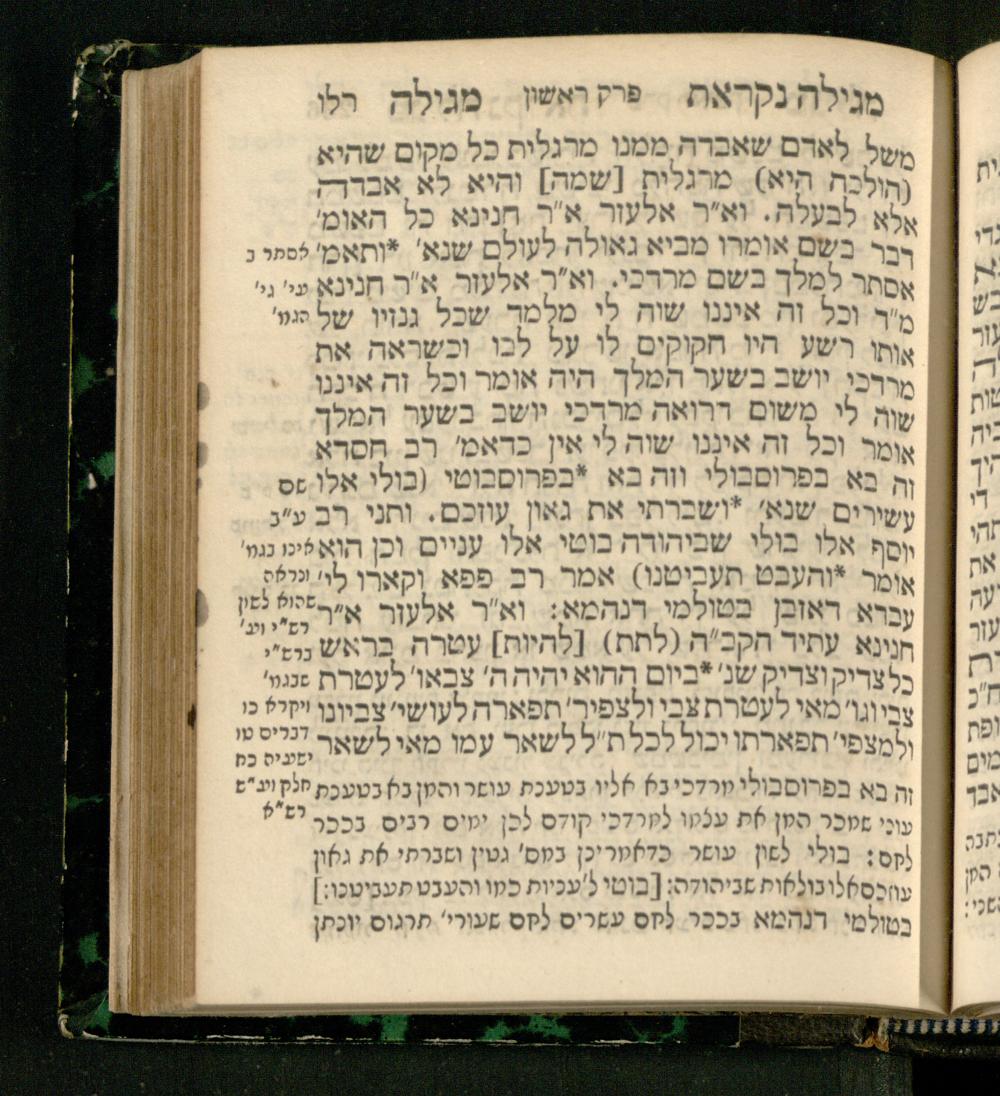 מגילה נקראת פרק ראשון מגילה רלו
משל לאדם שאבדה ממנו מרגלית כל מקום שהיא
(הולכת היא) מרגלית [שמה] והיא לא אבדה
אלא לבעלה. וא״ר אלעזר א״ר חנינא כל האומ׳
דבר בשם אומרו מביא גאולה לעולם שנא׳ *ותאמ׳
אסתר למלך בשם מרדכי. וא״ר אלעזר א״ר חנינא
מ״ד וכל זה איננו שוה לי מלמד שכל גנזיו של
אותו רשע היו חקוקים לו על לבו וכשראה את
מרדכי יושב בשער המלך היה אומר וכל זה איננו
שוה לי משום דרואה מרדכי יושב בשער המלך
אומר וכל זה איננו שוה לי אין כדאמ׳ רב חסדא
זה בא בפרוסבולי וזה בא *בפרוסבוטי (בולי אלו
עשירים שנא׳ *ושברתי את גאון עוזכם. ותני רב
יוסף אלו בולי שביהודה בוטי אלו עניים וכן הוא
אומר *והעבט תעביטנו) אמר רב פפא וקארו לי׳
עברא דאזבן בטולמי דנהמא: וא״ר אלעזר א״ר
חנינא עתיד הקב״ה (לתת) [להיות] עטרה בראש
כל צדיק וצדיק שנ׳ *ביום ההוא יהיה ה׳ צבאו׳ לעטרת
צבי וגו׳ מאי לעטרת צבי ולצפיר׳ תפארה לעושי׳ צביונו
ולמצפי׳ תפארתו יכול לכל ת״ל לשאר עמו מאי לשאר
זה בא בפרוסבולי מרדכי בא אליו בטענת עושר והמן בא בטענת
עוני שמכר המן את עצמו למרדכי קודם לכן ימים רבים בככר
לחם: בולי לשון עושר כדאמרינן במס׳ גטין ושברתי את גאון
עוזכם אלו בולאות שביהודה: [בוטי ל׳ עניות כמו והעבט תעביטנו:]
בטולמי דנהמא בככר לחם עשרים לחם שעורי׳ תרגום יונתן
אסתר ב
עי׳ גי׳
הגמ׳
שם
ע״ב
אינו בגמ׳
ונראה
שהוא לשון
רש״י ועי׳
ברש״י
שבגמ׳
ויקרא כו
דברים טו
ישעיה כח
חלק וע״ש
רש״א